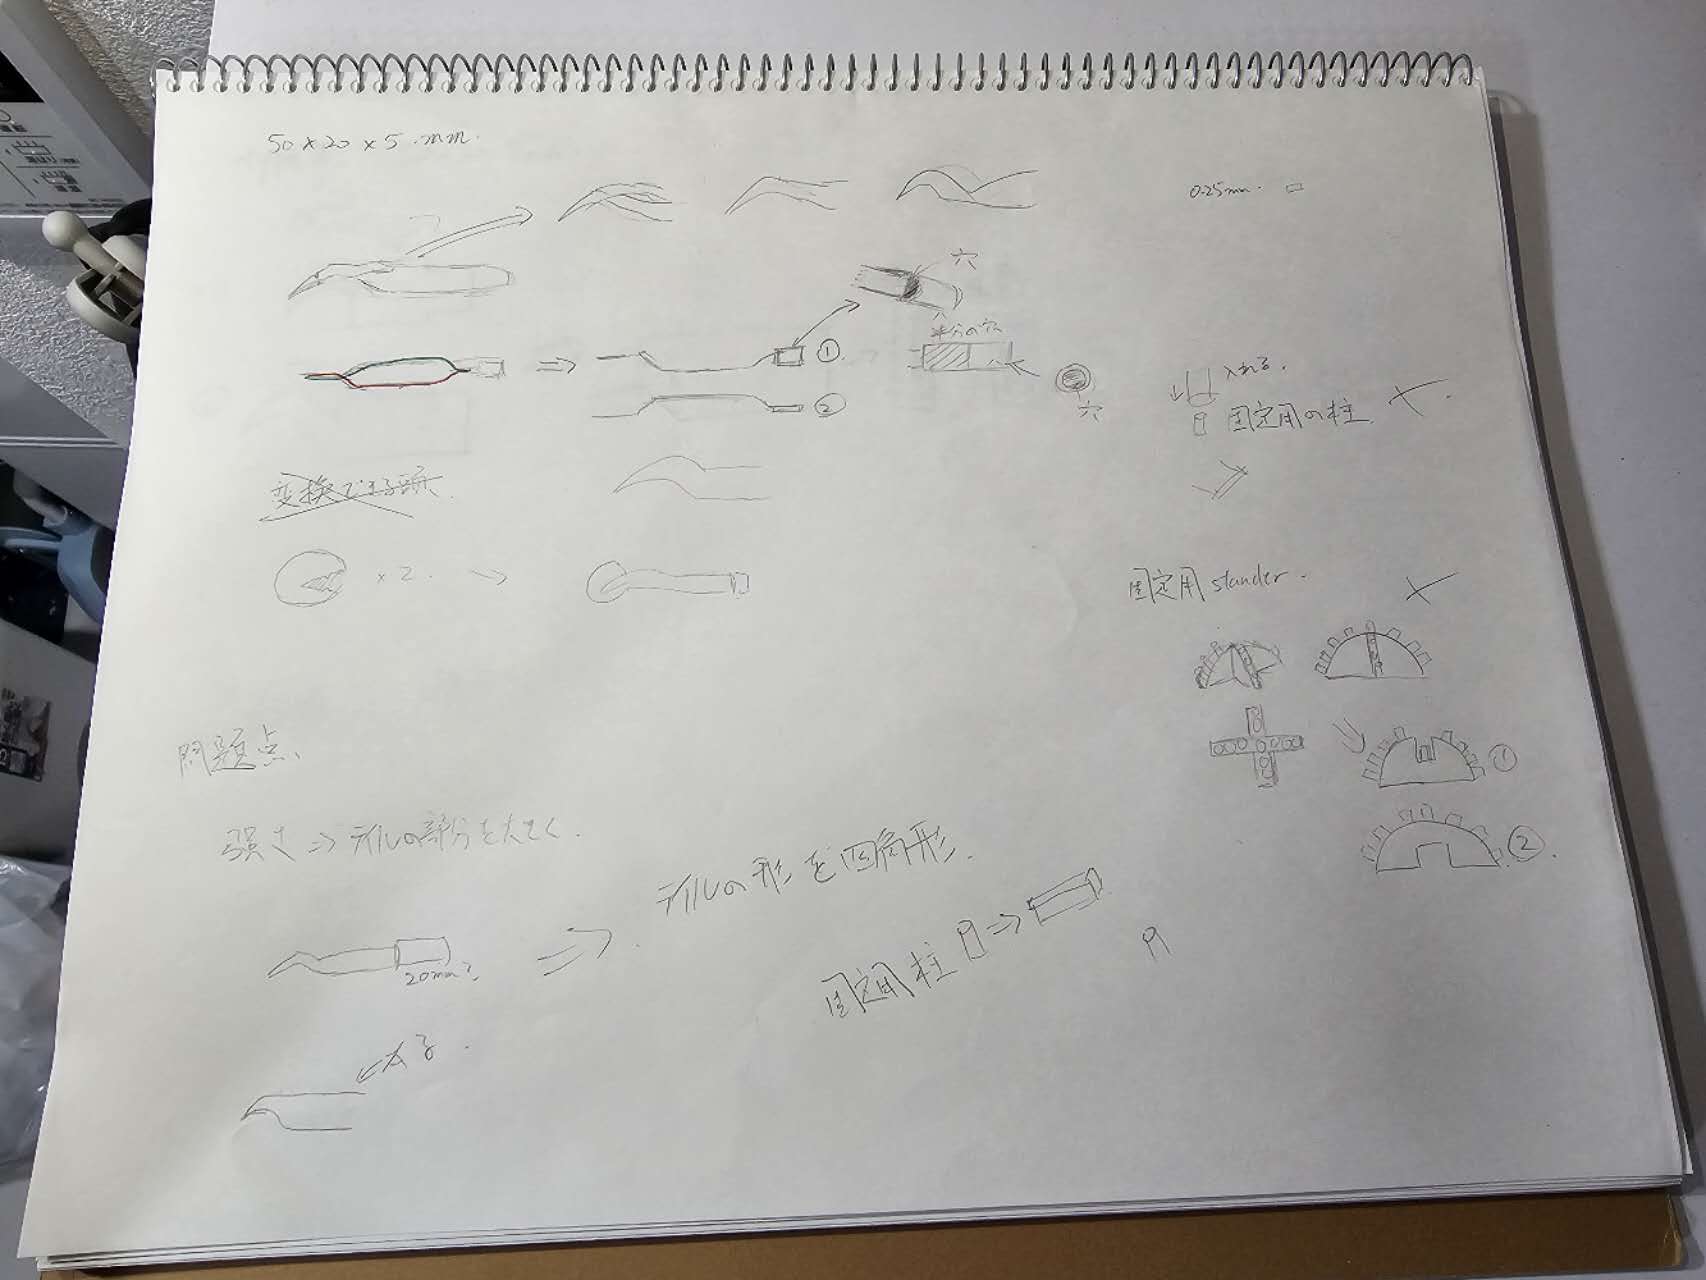 50 × 20 × 5 mm.
0.25mm.
穴
①.
半分の穴
②
穴
入れる.
固定用の柱
変換できる頭
× 2.
固定用 stander.
問題点、
①
強さ ⇒ テイルの部分を大きく.
②.
テイルの形を四角形.
20mm
固定用柱